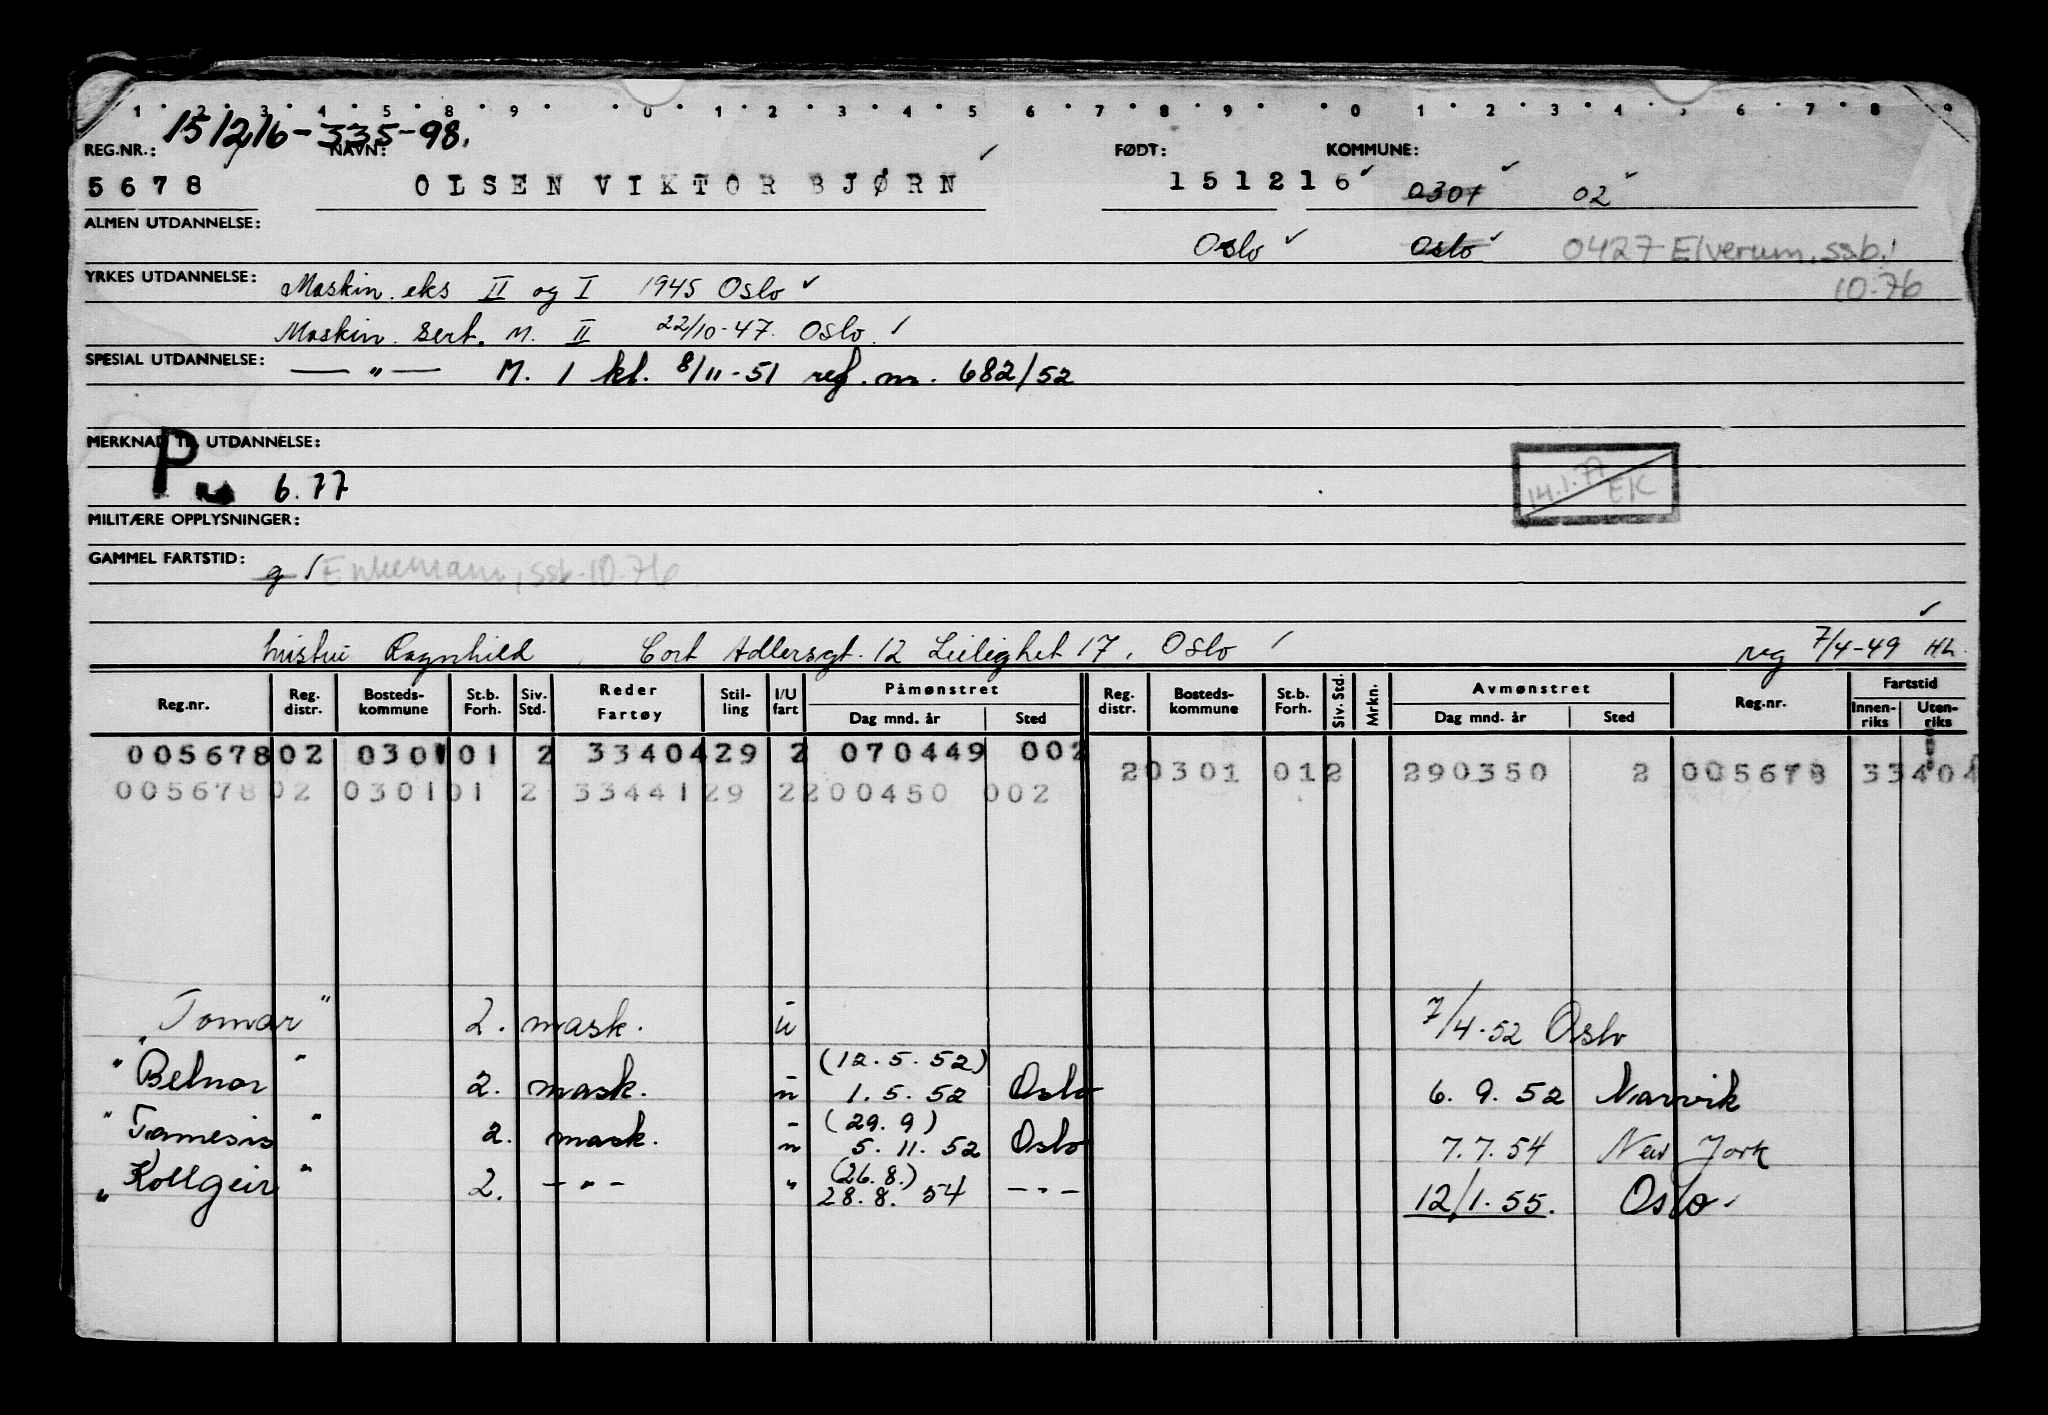 1 2 3 4 5 8 9 0 1 2 3 4 5 6 7 8 9 0 1 2 3 4 5 6 7 8 9
151216-335-98.
REG.NR.: NAVN: FØDT: KOMMUNE:
5678 OLSEN VIKTOR BJØRN 151216 0301 02
ALMEN UTDANNELSE: Oslo Oslo 0427 Elverum, ssb.
YRKES UTDANNELSE: Maskin. eks II og I 1945 Oslo 10-76
Maskin. sert. M. II 22/10-47. Oslo.
SPESIAL UTDANNELSE: — " — M. 1 kl. 8/11-51 ref. nr. 682/52
MERKNAD TIL UTDANNELSE:
P 6.77 14.1.77 EK
MILITÆRE OPPLYSNINGER:
GAMMEL FARTSTID: g Enkemann, ssb. 10-76
hustru Ragnhild, Cort Adlersgt. 12 Leilighet 17, Oslo 7/4-49 HL.
Reg.nr. Reg. distr. Bosteds- kommune St.b. Forh. Siv. Std. Reder Fartøy Stil- ling I/U fart Påmønstret Dag mnd. år Sted Reg. distr. Bosteds- kommune St.b. Forh. Siv. Std. Mrkn. Avmønstret Dag mnd. år Sted Reg.nr. Fartstid Innen- riks Uten- riks
005678 02 0301 01 2 33404 29 2 070449 002
2 0301 01 2 290350 2 005678 33404
005678 02 0301 01 2 33441 29 2 200450 002
"Tomar" 2. mask. u 7/4-52 Oslo
(12.5.52)
"Belnor" 2. mask. u 1.5.52 Oslo 6.9.52 Narvik
(29.9)
"Tamesis" 2. mask. u 5.11.52 Oslo 7.7.54 New York
(26.8.)
"Kollgeir" 2. - " - " 28.8.54 - " - 12/1.55. Oslo.